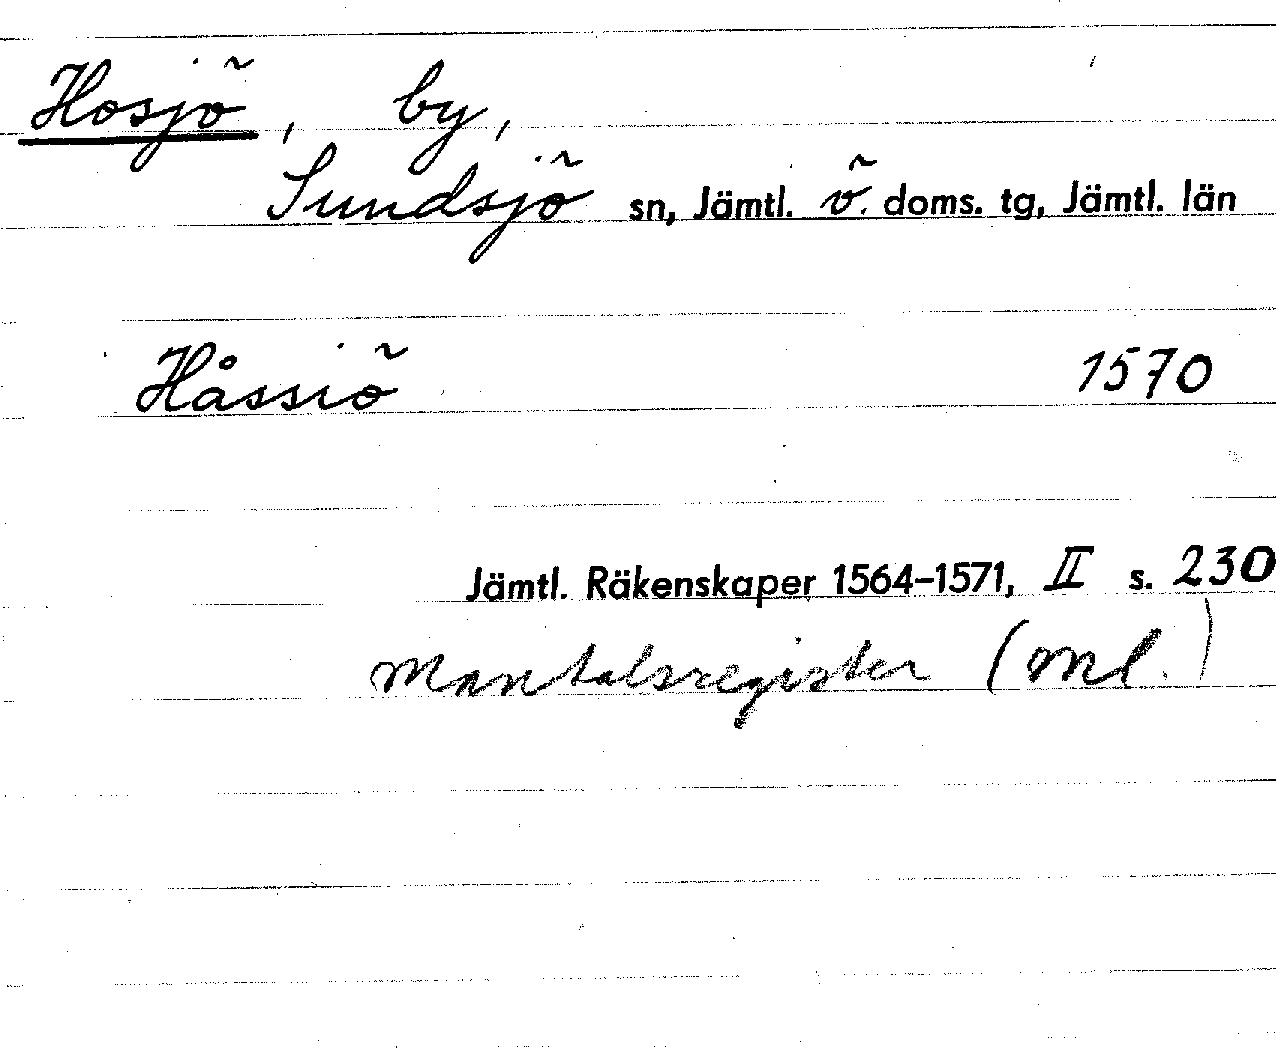 Hosjö, by,
Sundsjö sn, Jämtl. ö. doms. tg, Jämtl. län
Håssiö 1570
Jämtl. Räkenskaper 1564–1571, II s. 230
Mantalsregister (ml.)